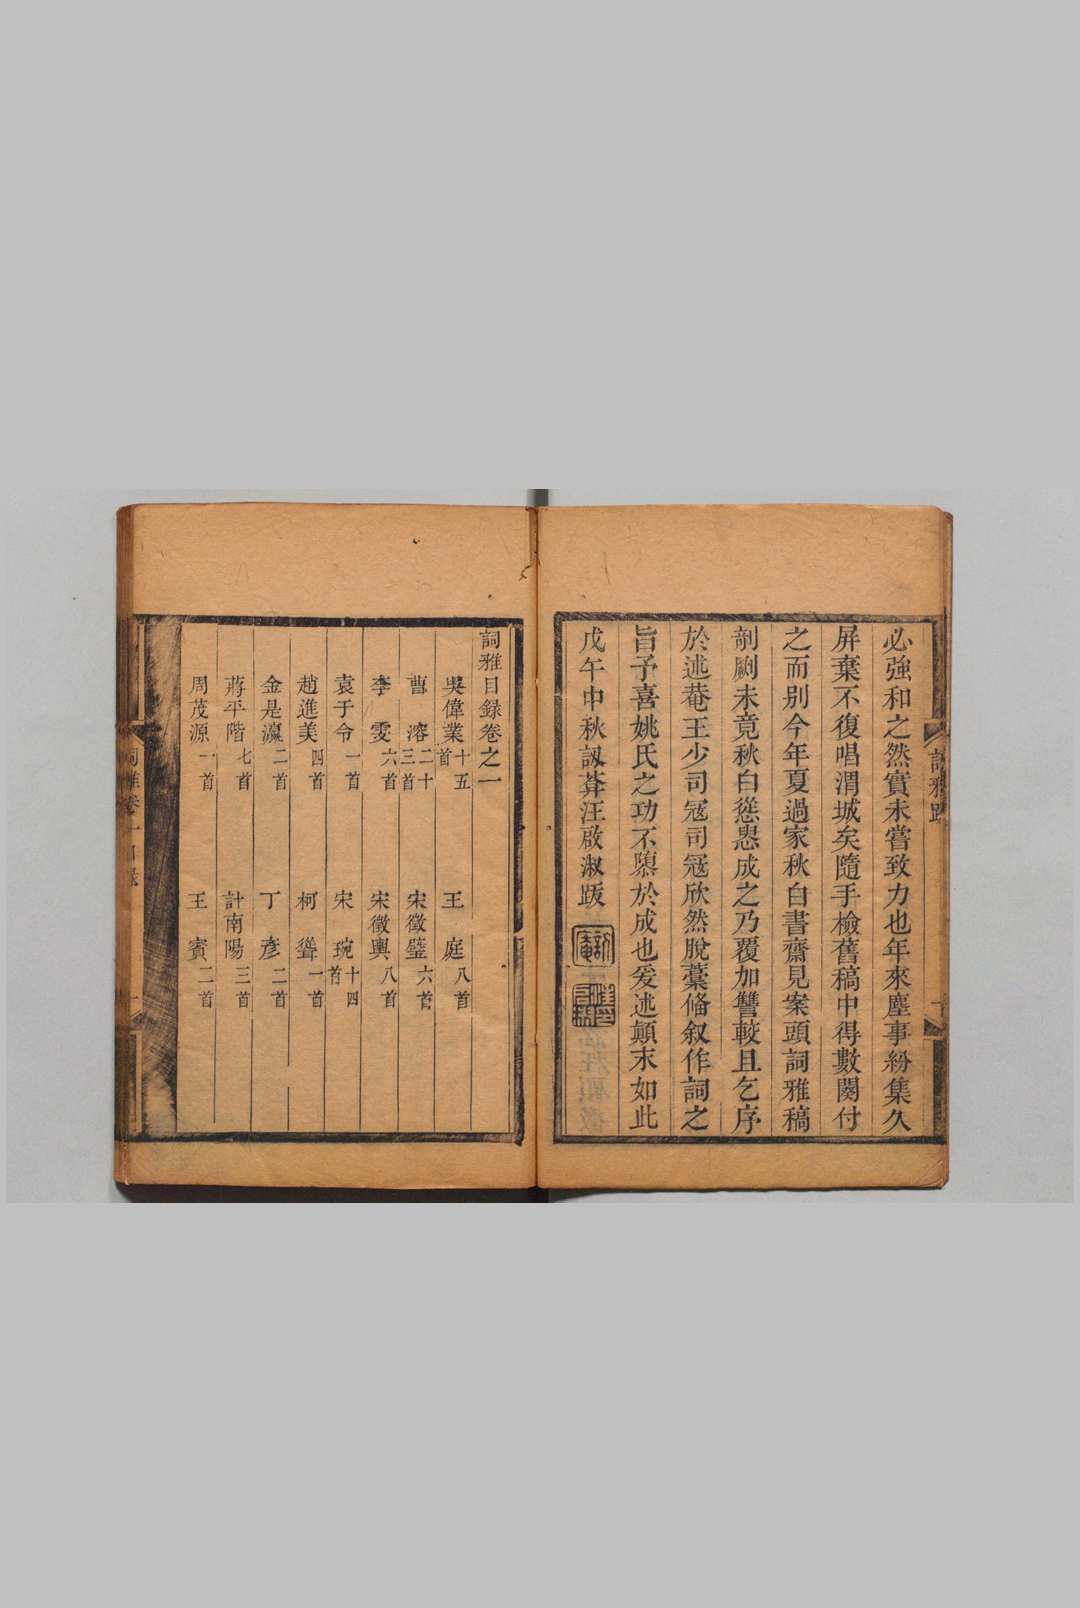 必強和之然實未嘗致力也年來塵事紛集久
屏棄不復唱渭城矣隨手檢舊稿中得數闋付
之而别今年夏過家秋白書齋見案頭詞雅稿
剞劂未竟秋白慫恿成之乃覆加讐較且乞序
於述菴王少司冦司冦欣然脫藁俻叙作詞之
旨予喜姚氏之功不隳於成也爰述顛末如此
戊午中秋訒葊汪啟淑跋
詞雅目録卷之一
吳偉業十五首 王庭八首
曹溶二十三首 宋徵璧六首
李雯六首 宋徵輿八首
袁于令一首 宋琬十四首
趙進美四首 柯聳一首
金是瀛二首 丁彦二首
蔣平階七首 計南陽三首
周茂源一首 王賓二首